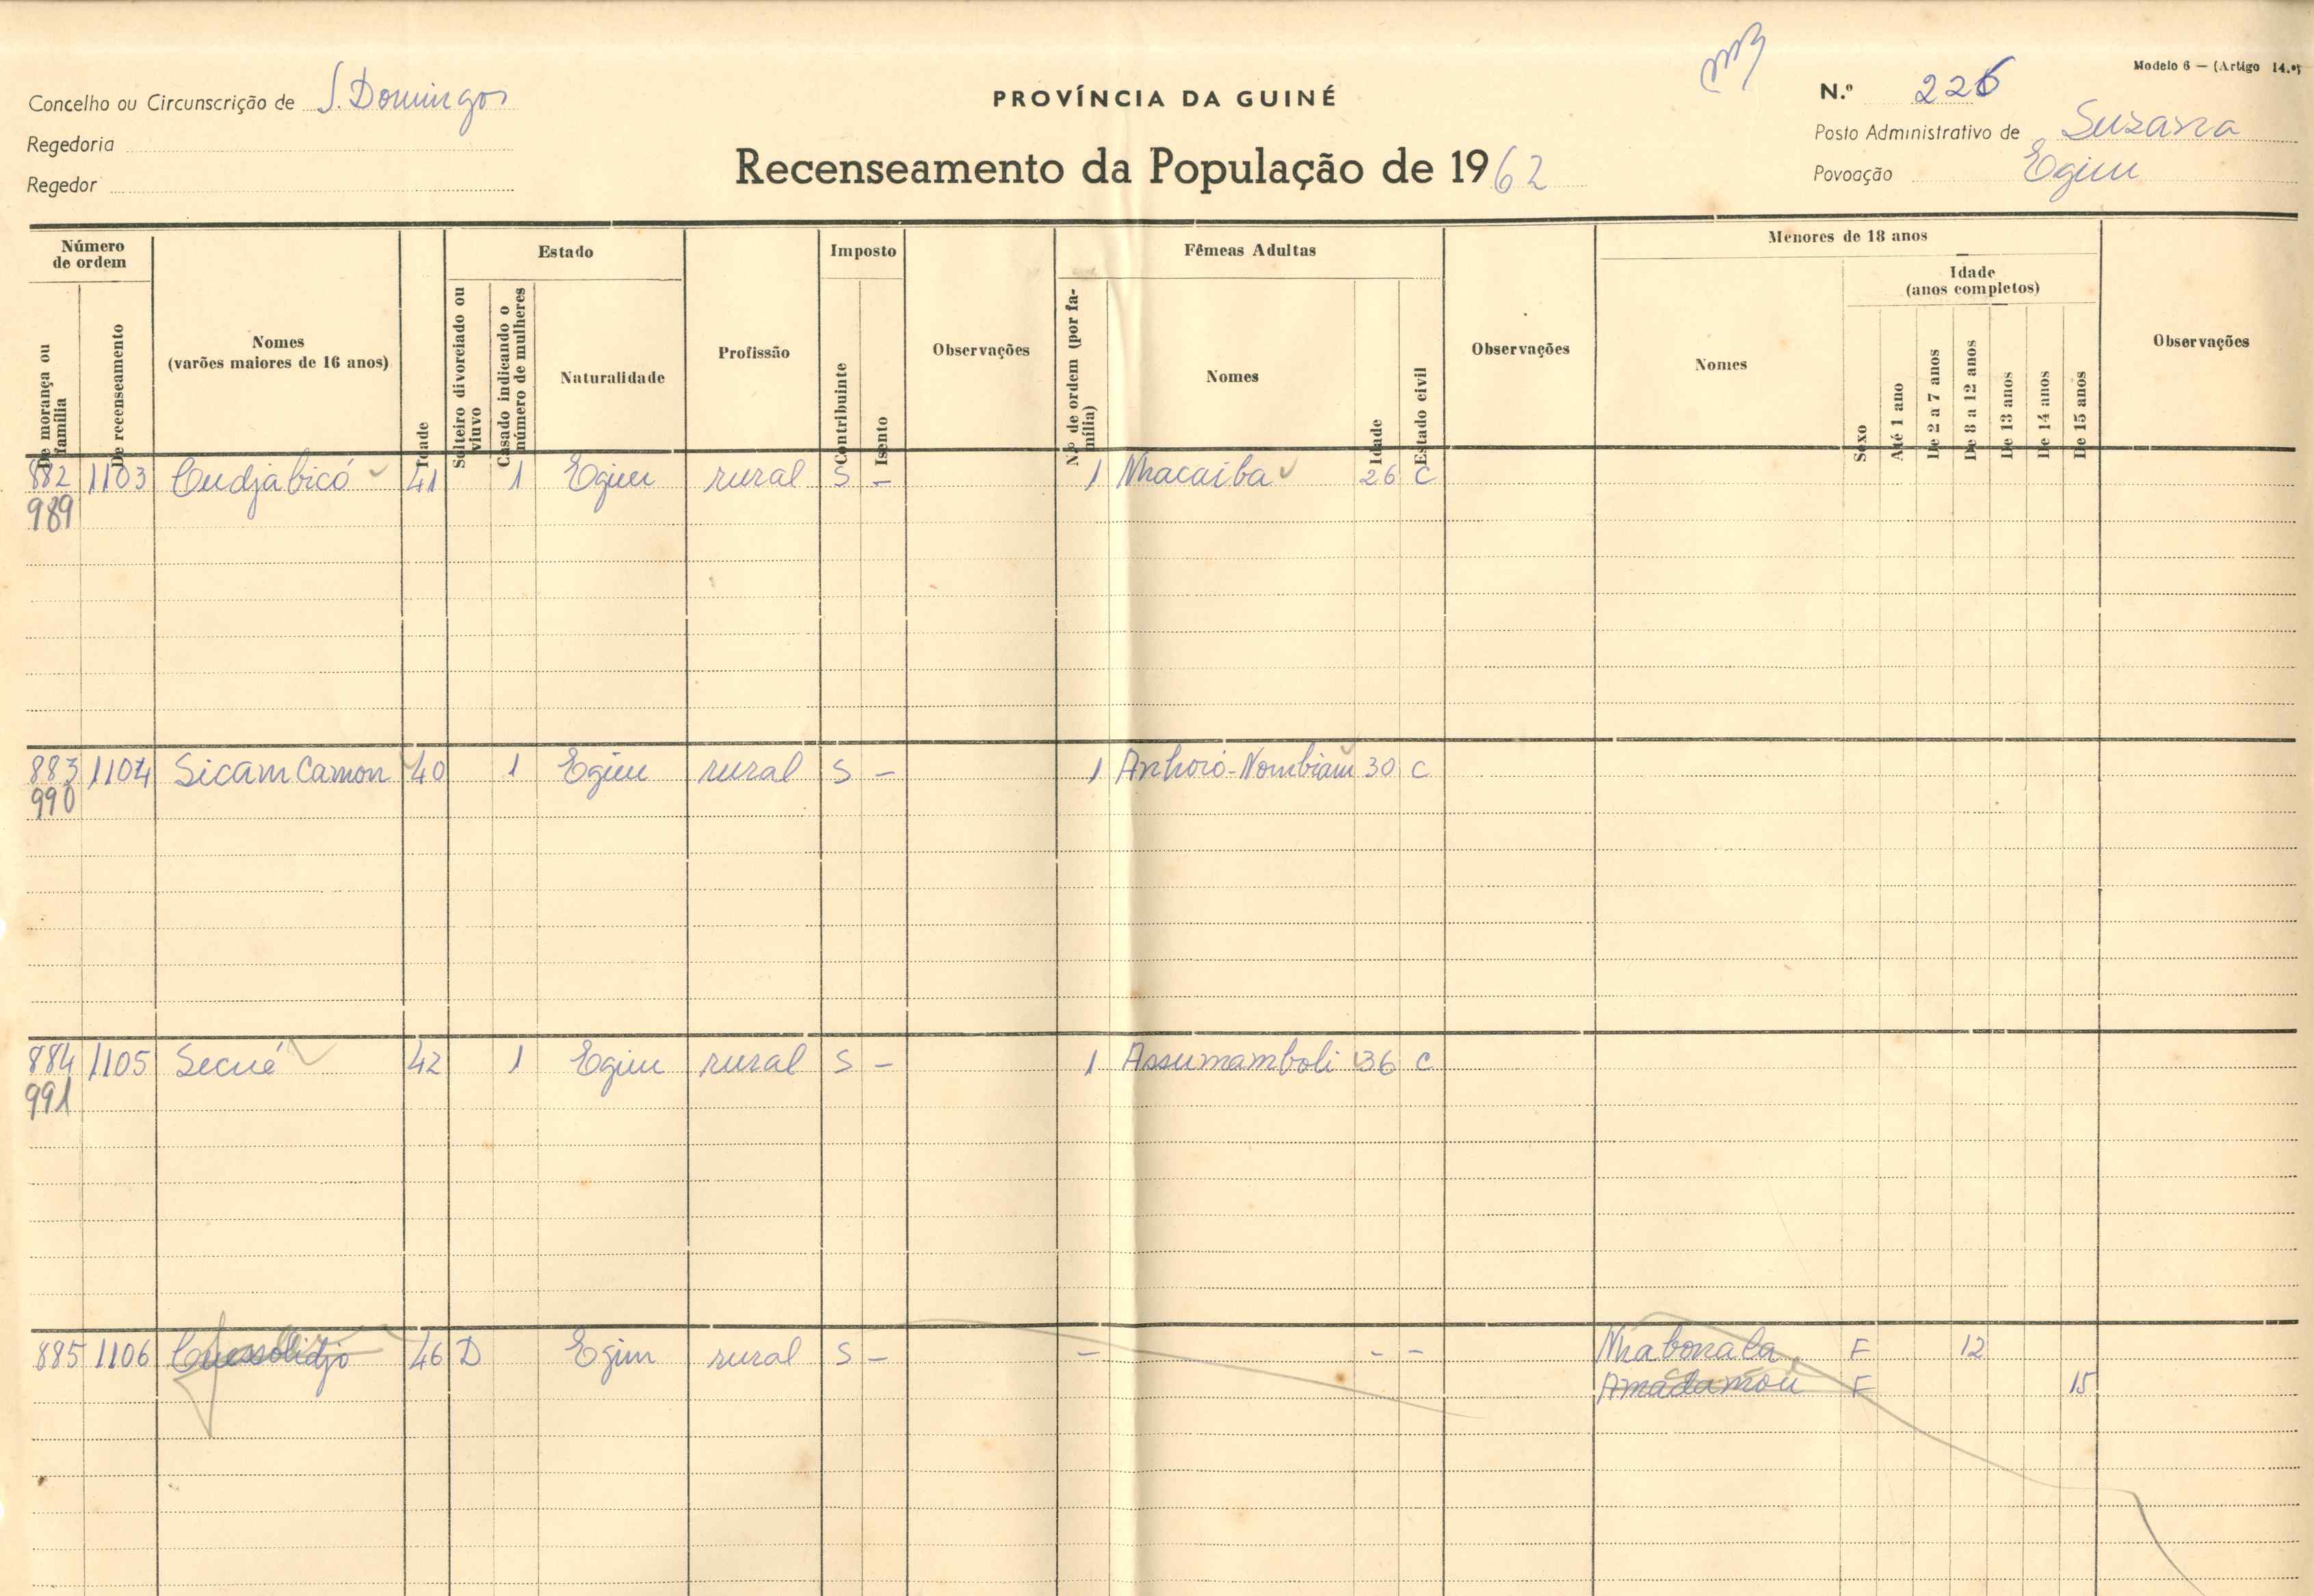 Modelo 6 — (Artigo 14.º)
Concelho ou Circunscrição de S. Domingos
PROVÍNCIA DA GUINÉ
N.º 226
Regedoria
Posto Administrativo de Suzana
Regedor
Recenseamento da População de 1962
Povoação Egim
Número de ordem
De morança ou família
De recenseamento
Nomes
(varões maiores de 16 anos)
Idade
Estado
Solteiro divorciado ou viuvo
Casado indicando o número de mulheres
Naturalidade
Profissão
Imposto
Contribuinte
Isento
Observações
Fêmeas Adultas
N.º de ordem (por família)
Nomes
Idade
Estado civil
Observações
Menores de 18 anos
Nomes
Sexo
Idade
(anos completos)
Até 1 ano
De 2 a 7 anos
De 8 a 12 anos
De 13 anos
De 14 anos
De 15 anos
Observações
882 1103 Cudjabicó 41 1 Egim rural S - 1 Nhacaiba 26 C
989
883 1104 Sicam Camon 40 1 Egim rural S - 1 Anhoió-Nombiam 30 C
990
884 1105 Secué 42 1 Egim rural S - 1 Assumamboli 36 C
991
885 1106 46 D Egim rural S - - - - Nhabonala F 12
Amadamou F 15